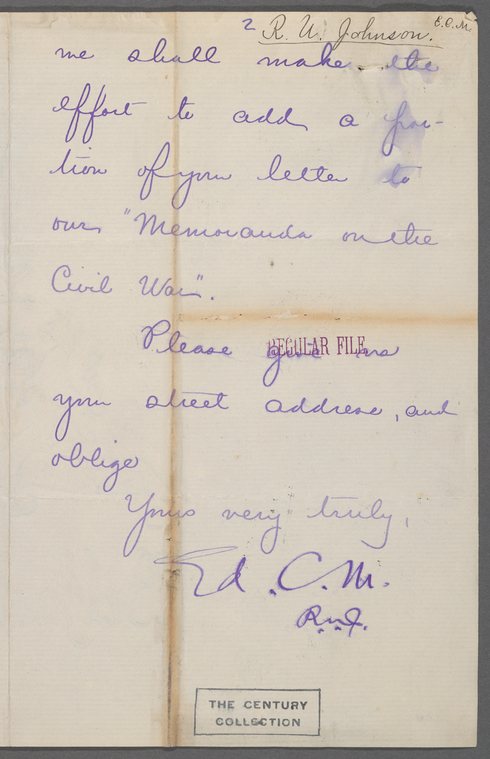 2 R. U. Johnson. E.C.M.
we shall make the
effort to add a por-
tion of your letter to
our "Memoranda on the
Civil War".
Please give me
REGULAR FILE
your street address, and
oblige
Yours very truly,
Ed. C. M.
R.U.J.
THE CENTURY
COLLECTION